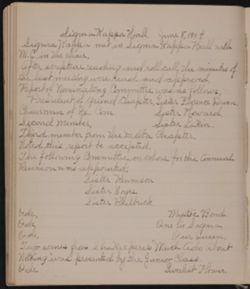 Sigma Kappa Hall June 8, 1904
Sigma Kappa met in Sigma Kappa Hall with
in the chair.
After scripture reading and roll call, the minutes of
the last meeting were read and approved.
Report of Nominating Committee was as follows,
President of Grand Chapter, Sister Florence Dunn.
Chairman of Ex. Com. Sister Howard
Second Member, Sister
Third member from the Delta Chapter.
Voted this report be accepted.
The following Committee on colors for the Annual
Reunion was appointed:
Sister Kennison
Sister
Sister Philbrick
Ode, Mystic Bond
Ode, One by Sigma
Ode, Dear Queen
Two scenes from Shakespere's Much Ado About
Nothing was presented by the Junior Class.
Ode Sweetest Flower